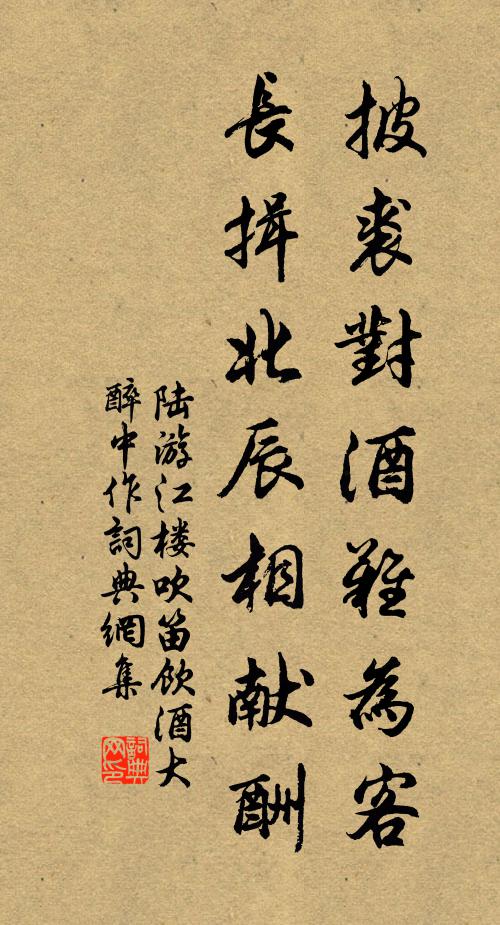 披裘對酒難為客
長揖北辰相献酬
陆游江楼吹笛饮酒大
醉中作詞典網集
詞典
网印